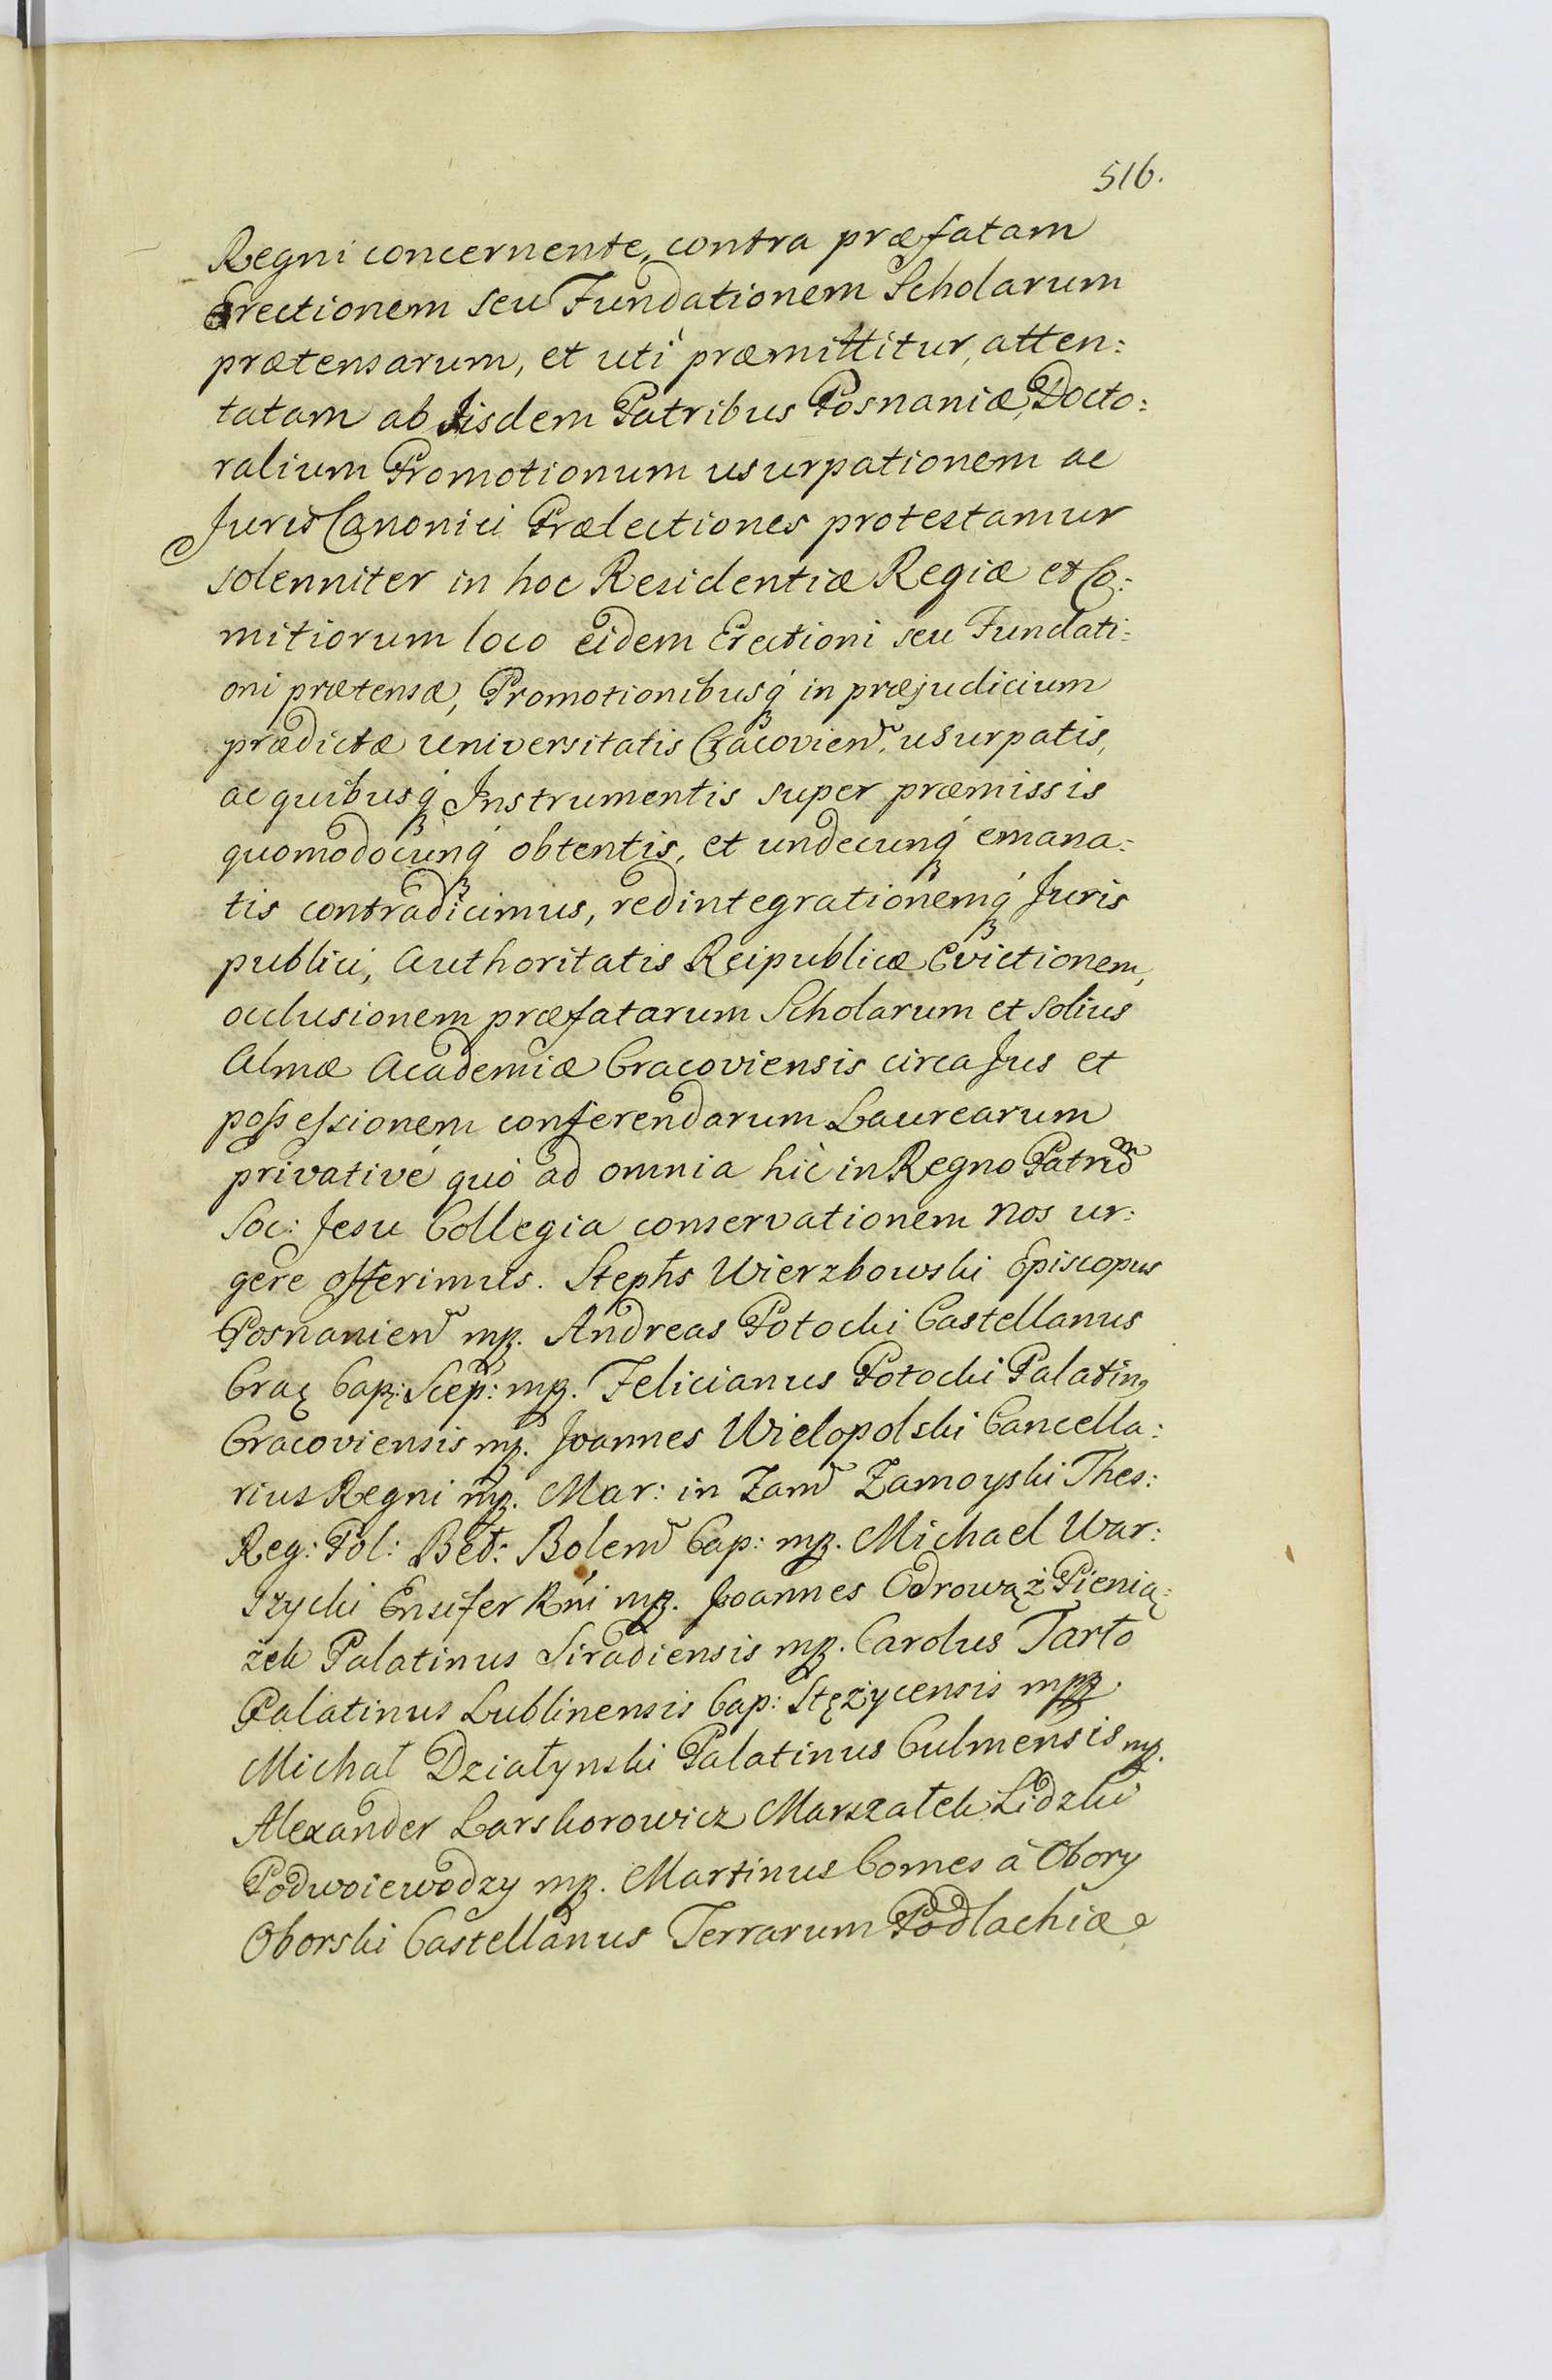 516.
Regni concernente, contra præfatam
Erectionem seu Fundationem Scholarum
prætensarum, et uti præmittitur, atten:
tatam ab Iisdem Patribus Posnaniæ, Docto:
ralium Promotionum usurpationem ac
Juris Canonici Prælectiones protestamur
solenniter in hoc Residentiæ Regiæ et Co:
mitiorum loco eidem Erectioni seu Fundati:
oni prætensæ, Promotionibusq́ in præjudicium
prædictæ Universitatis Cracovien̄. usurpatis,
ac quibusq́ Instrumentis super præmissis
quomodocunq́ obtentis, et undecunq́ emana:
tis contradicimus, redintegrationemq́ Juris
publici, Authoritatis Reipublicæ Evictionem,
occlusionem præfatarum Scholarum et solius
Almæ Academiæ Cracoviensis circa Jus et
poſseſsionem conferendarum Laurearum
privativé quò ad omnia hìc in Regno Patrum
Soc: Jesu Collegia conservationem nos ur:
gere offerimus. Stephs Wierzbowski Episcopus
Posnanien̄ mp. Andreas Potocki Castellanus
Crac Cap: Scep: mp. Felicianus Potocki Palatin9
Cracoviensis mp. Joannes Wielopolski Cancella:
rius Regni mp. Mar: in Zam̄ Zamoyski Thes:
Reg: Pol: Bet: Bolem̄ Cap: mp. Michael War:
szycki Ensifer Rni mp. Joannes Odrowąż Pienią:
żek Palatinus Siradiensis mp. Carolus Tarło
Palatinus Lublinensis Cap: Stężycensis mpp
Michał Działynski Palatinus Culmensis mp.
Alexander Larskorowicz Marszałek Lidzki
Podwoiewodzy mp. Martinus Comes à Obory
Oborski Castellanus Terrarum Podlachiæ